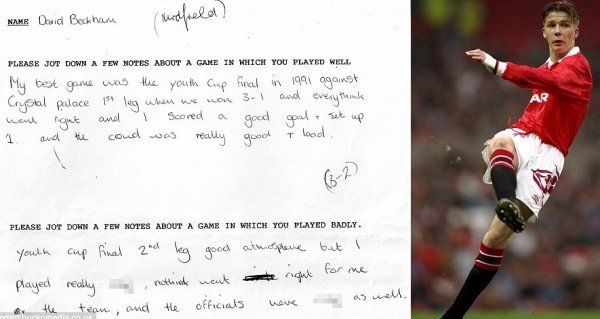 NAME David Beckham (Midfield)
PLEASE JOT DOWN A FEW NOTES ABOUT A GAME IN WHICH YOU PLAYED WELL
My best game was the youth Cup final in 1991 against
Crystal palace 1st leg when we won 3-1 and everythink
went right and I scored a good goal + set up
1. and the coud was really good + load.
(3-2)
PLEASE JOT DOWN A FEW NOTES ABOUT A GAME IN WHICH YOU PLAYED BADLY.
youth cup final 2nd leg good atmospheve but I
played really , nothink went right for me
or the team, and the officials were as well.
AR